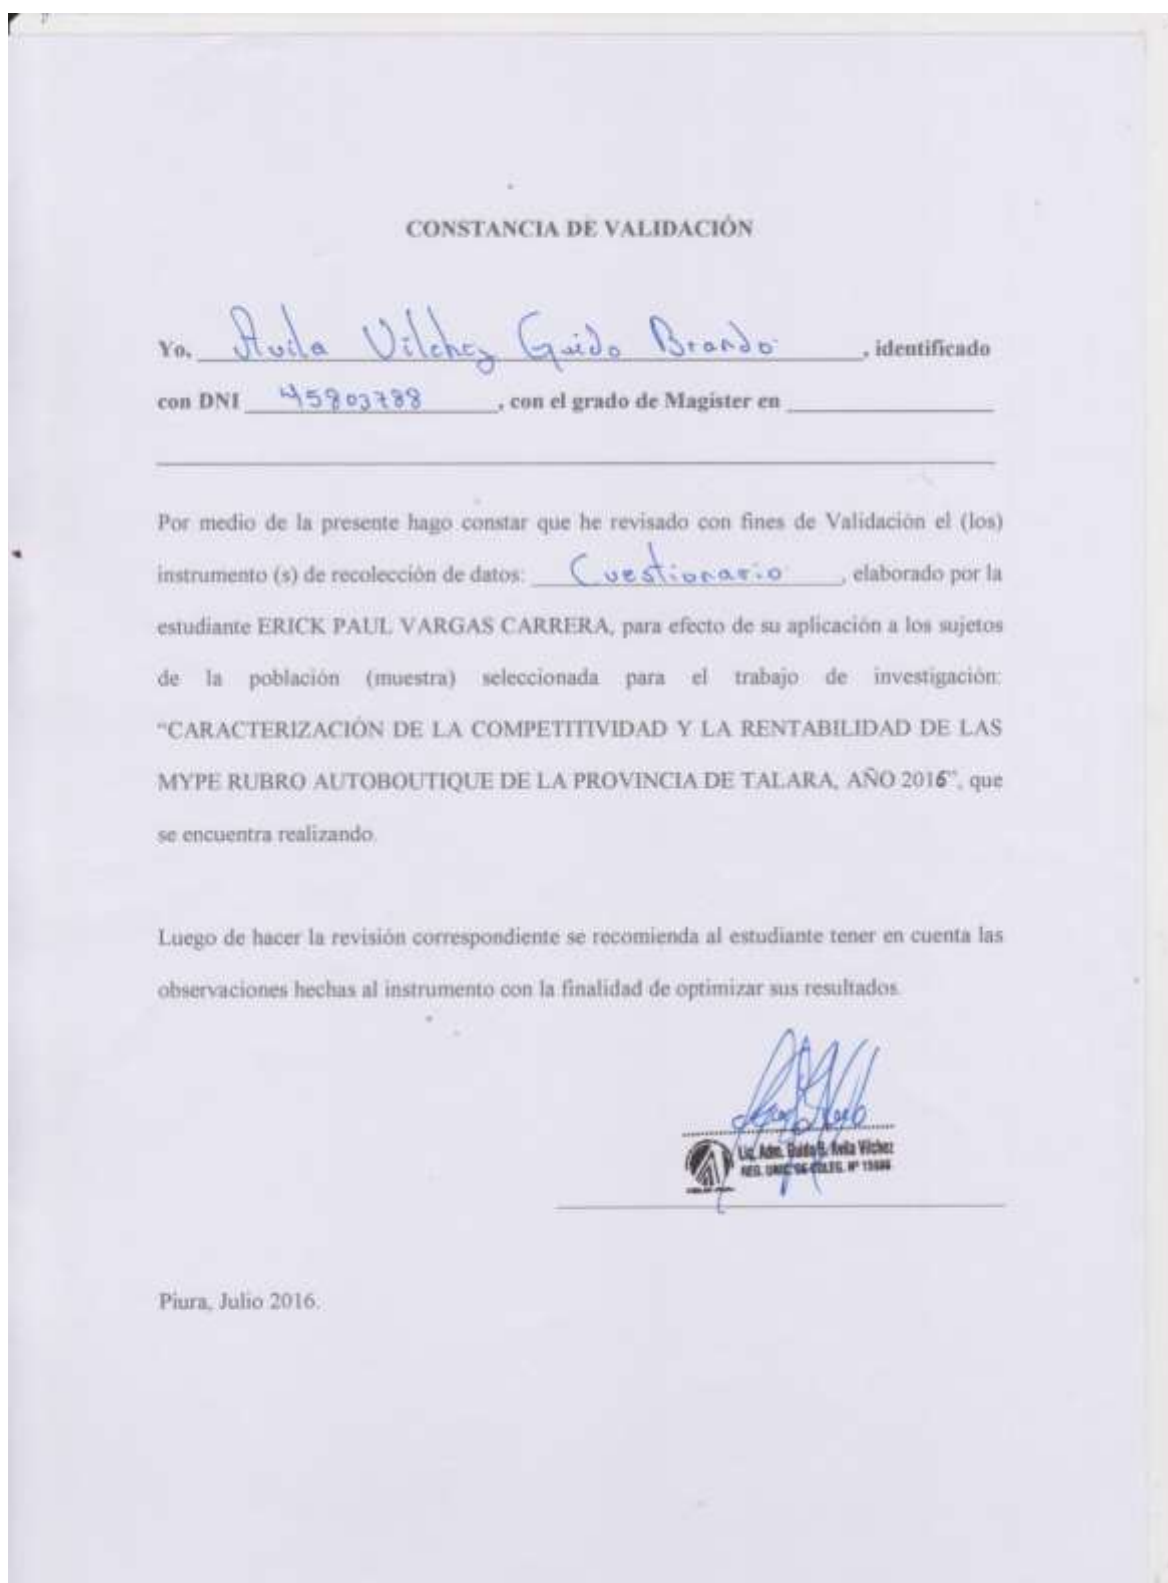 CONSTANCIA DE VALIDACIÓN
Yo, Avila Vilchez Guido Brando, identificado
con DNI 45803788, con el grado de Magister en
Por medio de la presente hago constar que he revisado con fines de Validación el (los)
instrumento (s) de recolección de datos: Cuestionario, elaborado por la
estudiante ERICK PAUL VARGAS CARRERA, para efecto de su aplicación a los sujetos
de la población (muestra) seleccionada para el trabajo de investigación:
“CARACTERIZACIÓN DE LA COMPETITIVIDAD Y LA RENTABILIDAD DE LAS
MYPE RUBRO AUTOBOUTIQUE DE LA PROVINCIA DE TALARA, AÑO 2016”, que
se encuentra realizando.
Luego de hacer la revisión correspondiente se recomienda al estudiante tener en cuenta las
observaciones hechas al instrumento con la finalidad de optimizar sus resultados.
Lic. Adm. Guido B. Avila Vilchez
REG. UNIC. DE COLEG. Nº
Piura, Julio 2016.